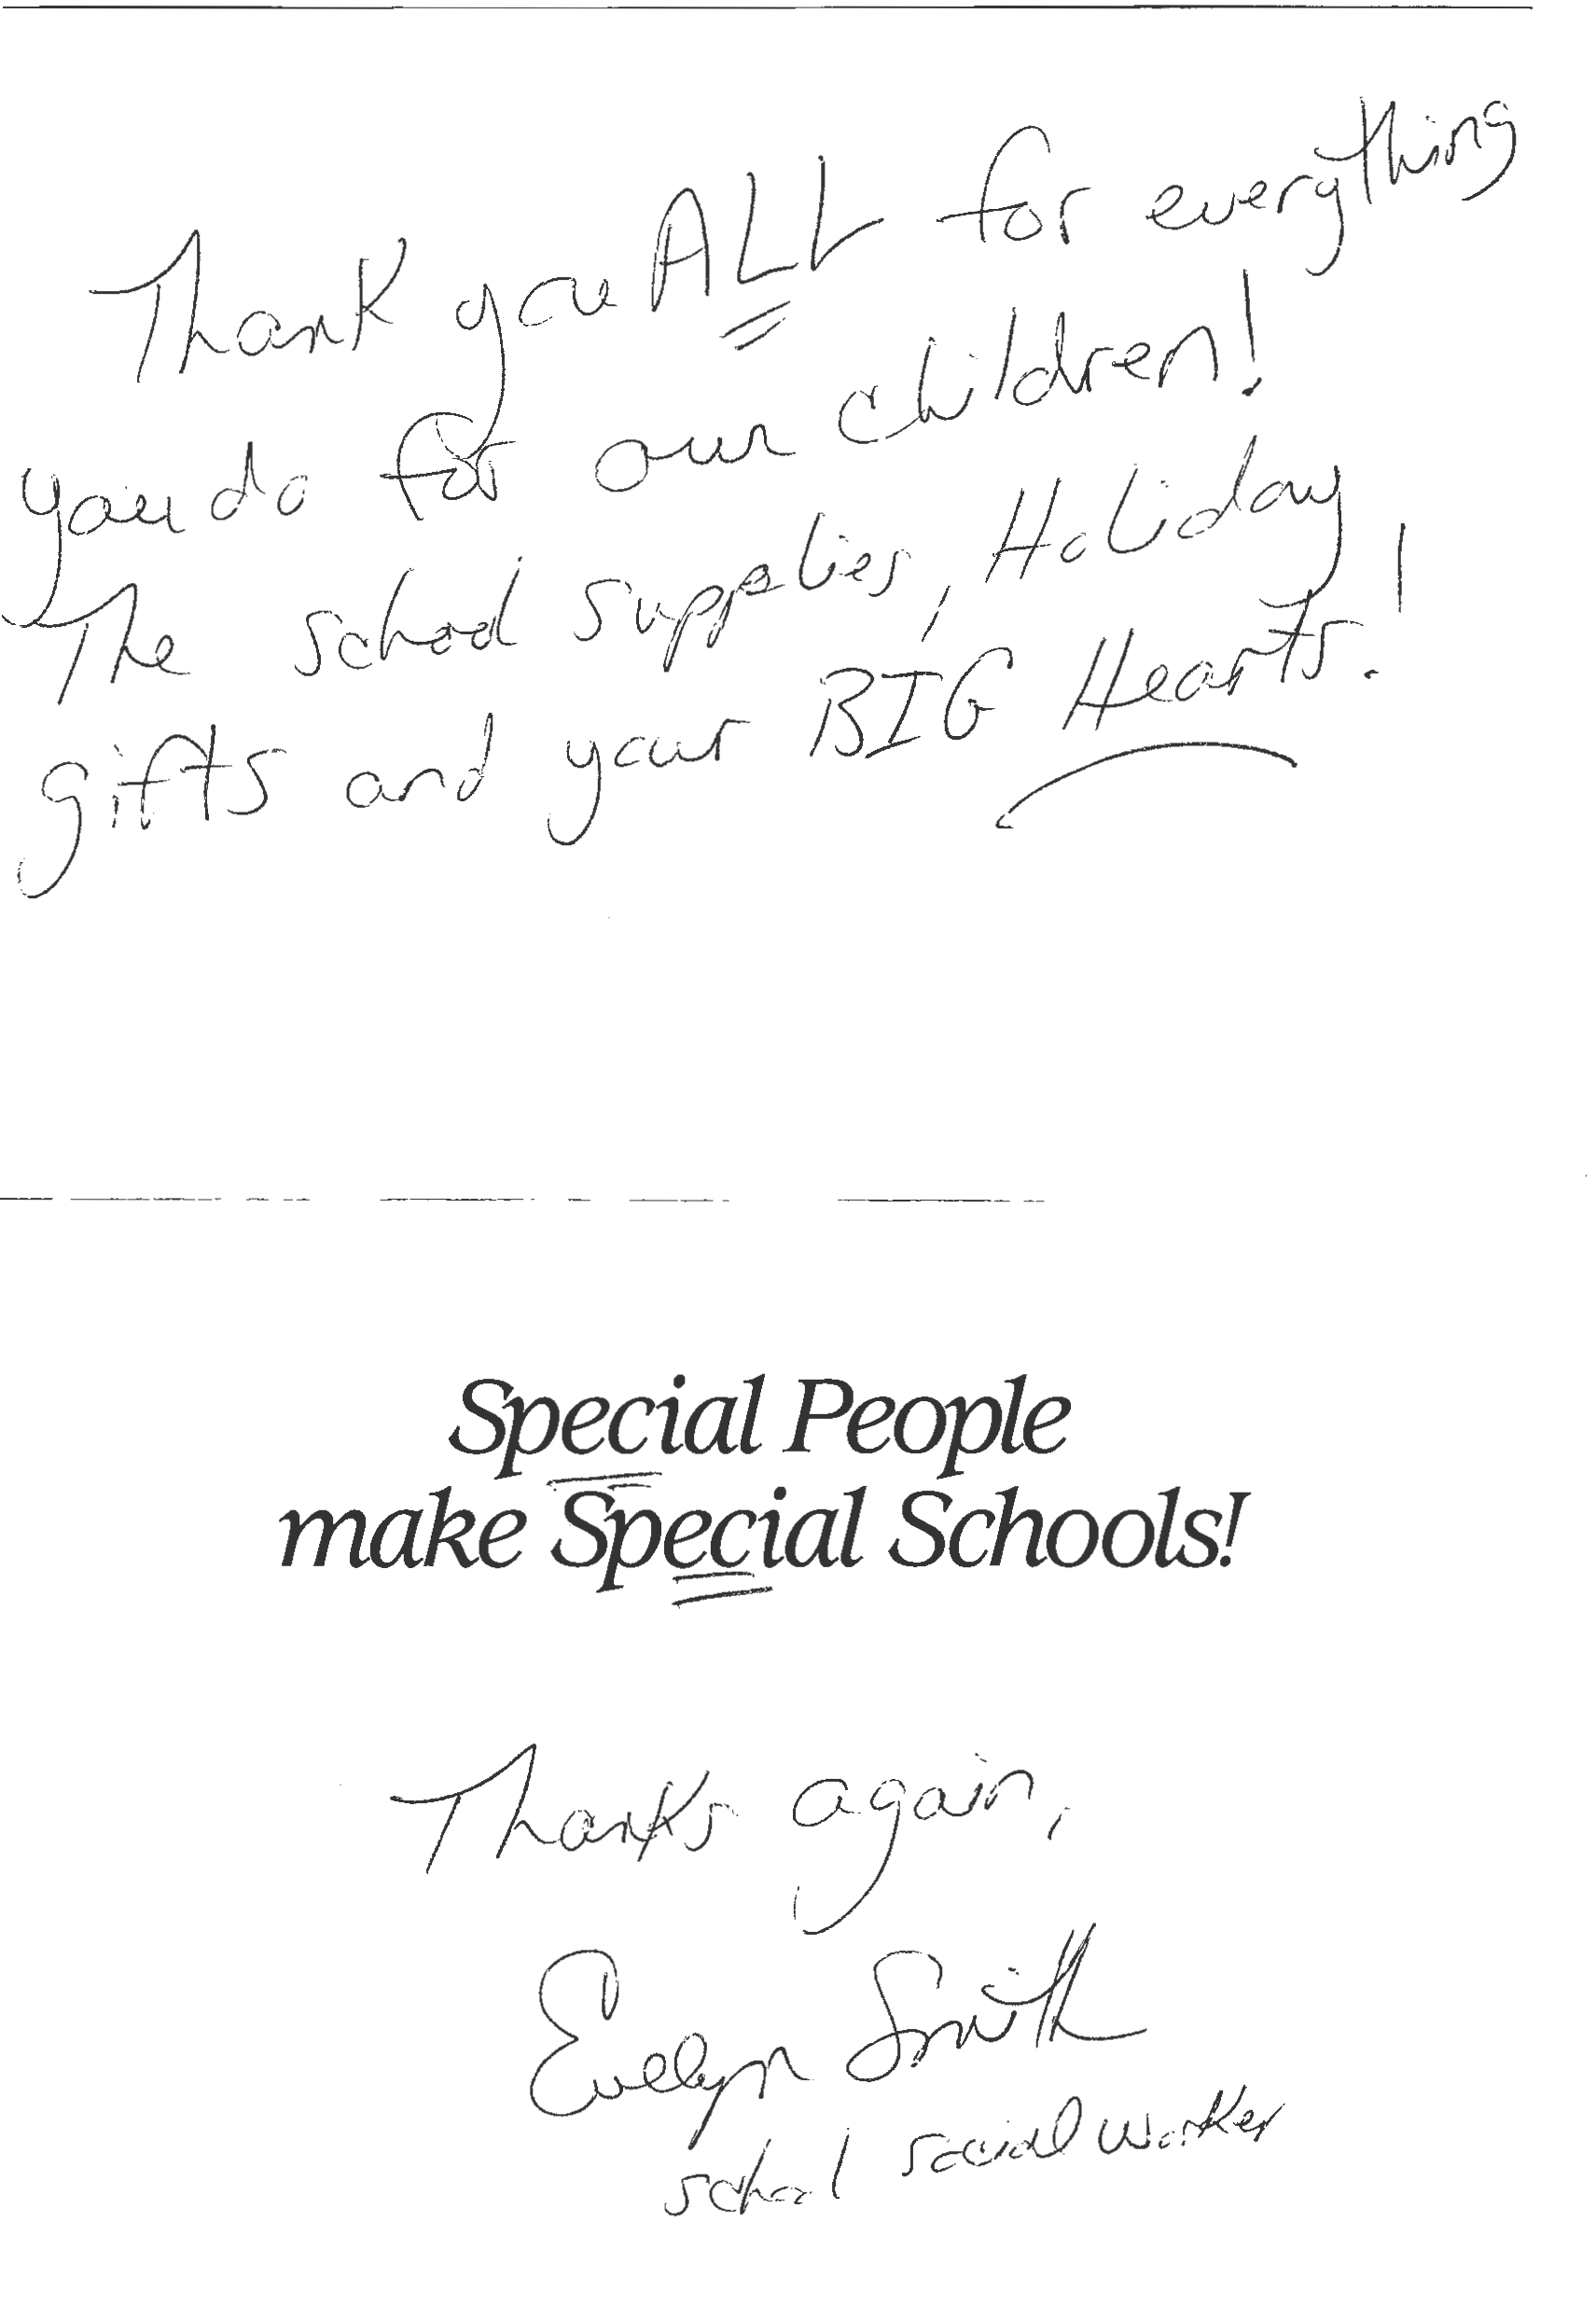 Thank you ALL for everything
you do for our children!
The school supplies, Holiday
gifts and your BIG Hearts!
Special People
make Special Schools!
Thanks again,
Evelyn Smith
school social worker